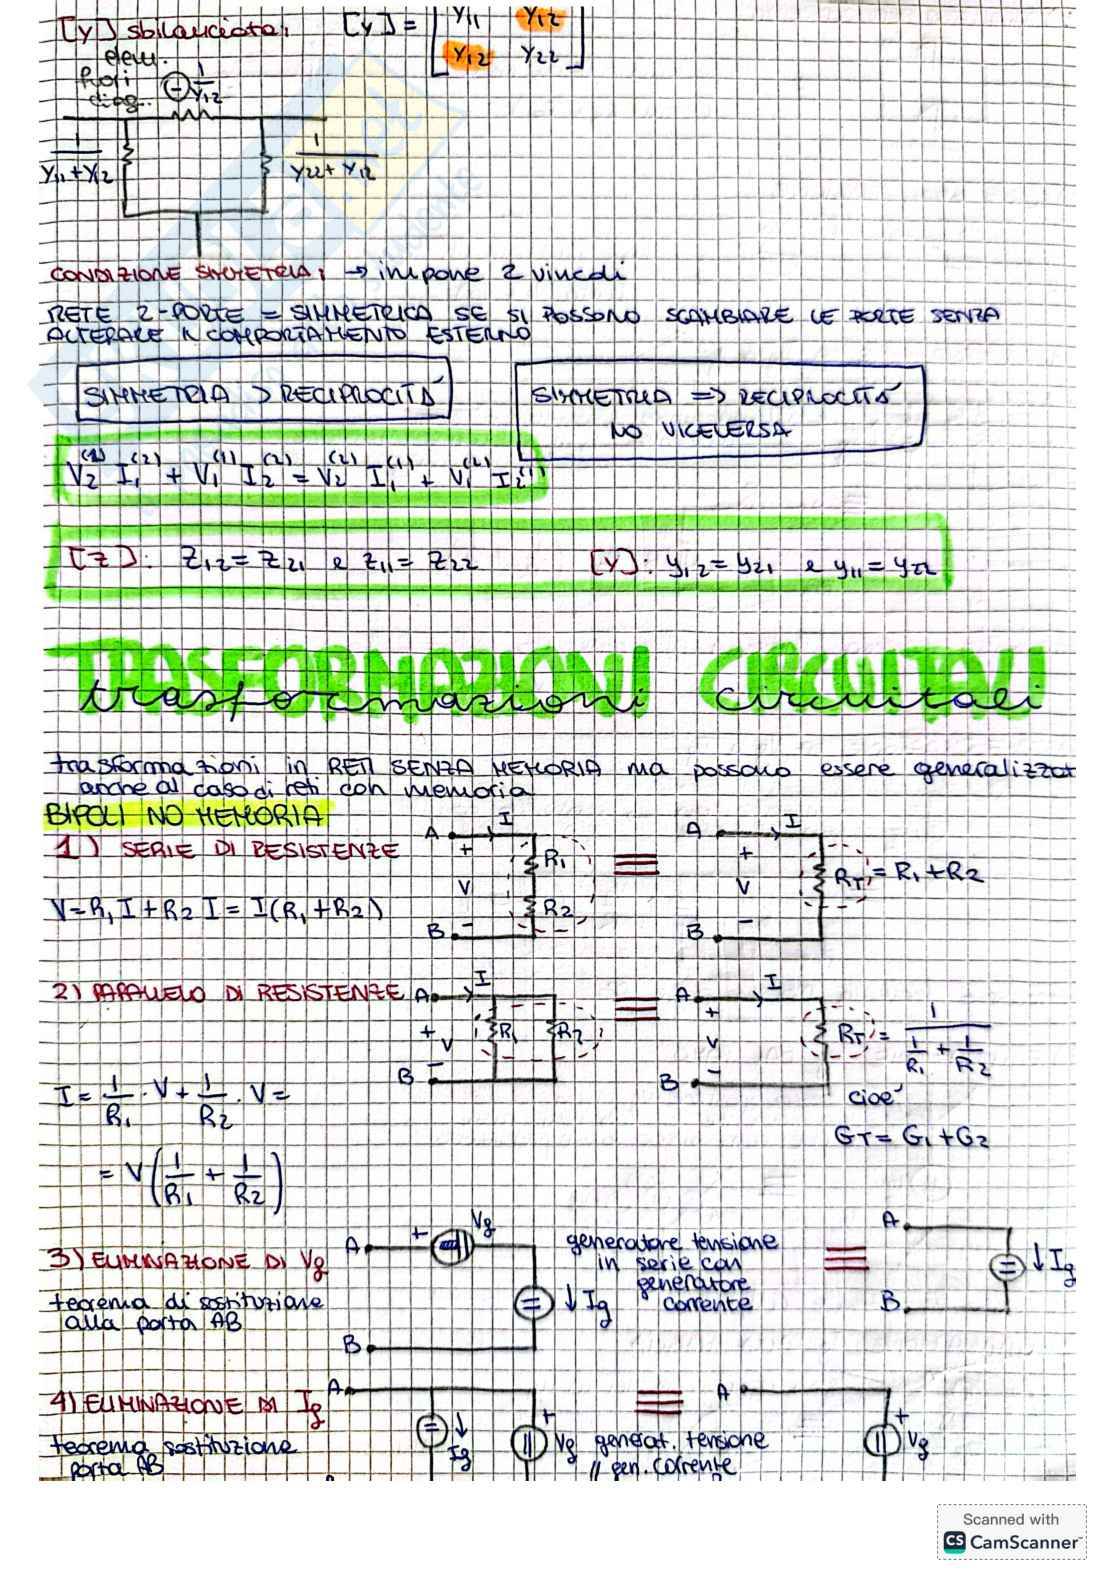 [Y] sbilanciata:
[Y] = [Y11 Y12
Y12 Y22]
elem.
fuori
diag.
- 1/Y12
1/(Y11+Y12)
1/(Y22+Y12)
CONDIZIONE SIMMETRIA: → impone 2 vincoli
RETE 2-PORTE = SIMMETRICA SE SI POSSONO SCAMBIARE LE PORTE SENZA
ALTERARE IL COMPORTAMENTO ESTERNO
SIMMETRIA > RECIPROCITÀ
SIMMETRIA => RECIPROCITÀ
NO VICEVERSA
V2^(1) I1^(2) + V1^(1) I2^(2) = V2^(2) I1^(1) + V1^(2) I2^(1)
[Z]: Z12 = Z21 e Z11 = Z22
[Y]: y12 = y21 e y11 = y22
TRASFORMAZIONI CIRCUITALI
trasformazioni circuitali
trasformazioni in RETI SENZA MEMORIA ma possono essere generalizzat
anche al caso di reti con memoria
BIPOLI NO MEMORIA
1) SERIE DI RESISTENZE
V=R1 I + R2 I = I(R1+R2)
A I + V - B R1 R2
≡
A I + V - B RT = R1 + R2
2) PARALLELO DI RESISTENZE
A I + V - B R1 R2
≡
A I + V - B RT = 1/(1/R1 + 1/R2)
cioè
GT = G1 + G2
I = 1/R1 · V + 1/R2 · V =
= V(1/R1 + 1/R2)
3) ELIMINAZIONE DI Vg
teorema di sostituzione
alla porta AB
A + Vg
↓ Ig
B
generatore tensione
in serie con
generatore
corrente
≡
A
↓ Ig
B
4) ELIMINAZIONE DI Ig
teorema sostituzione
porta AB
A
↓ Ig
+ Vg
generat. tensione
// gen. corrente
≡
A
+ Vg
Scanned with
CS CamScanner